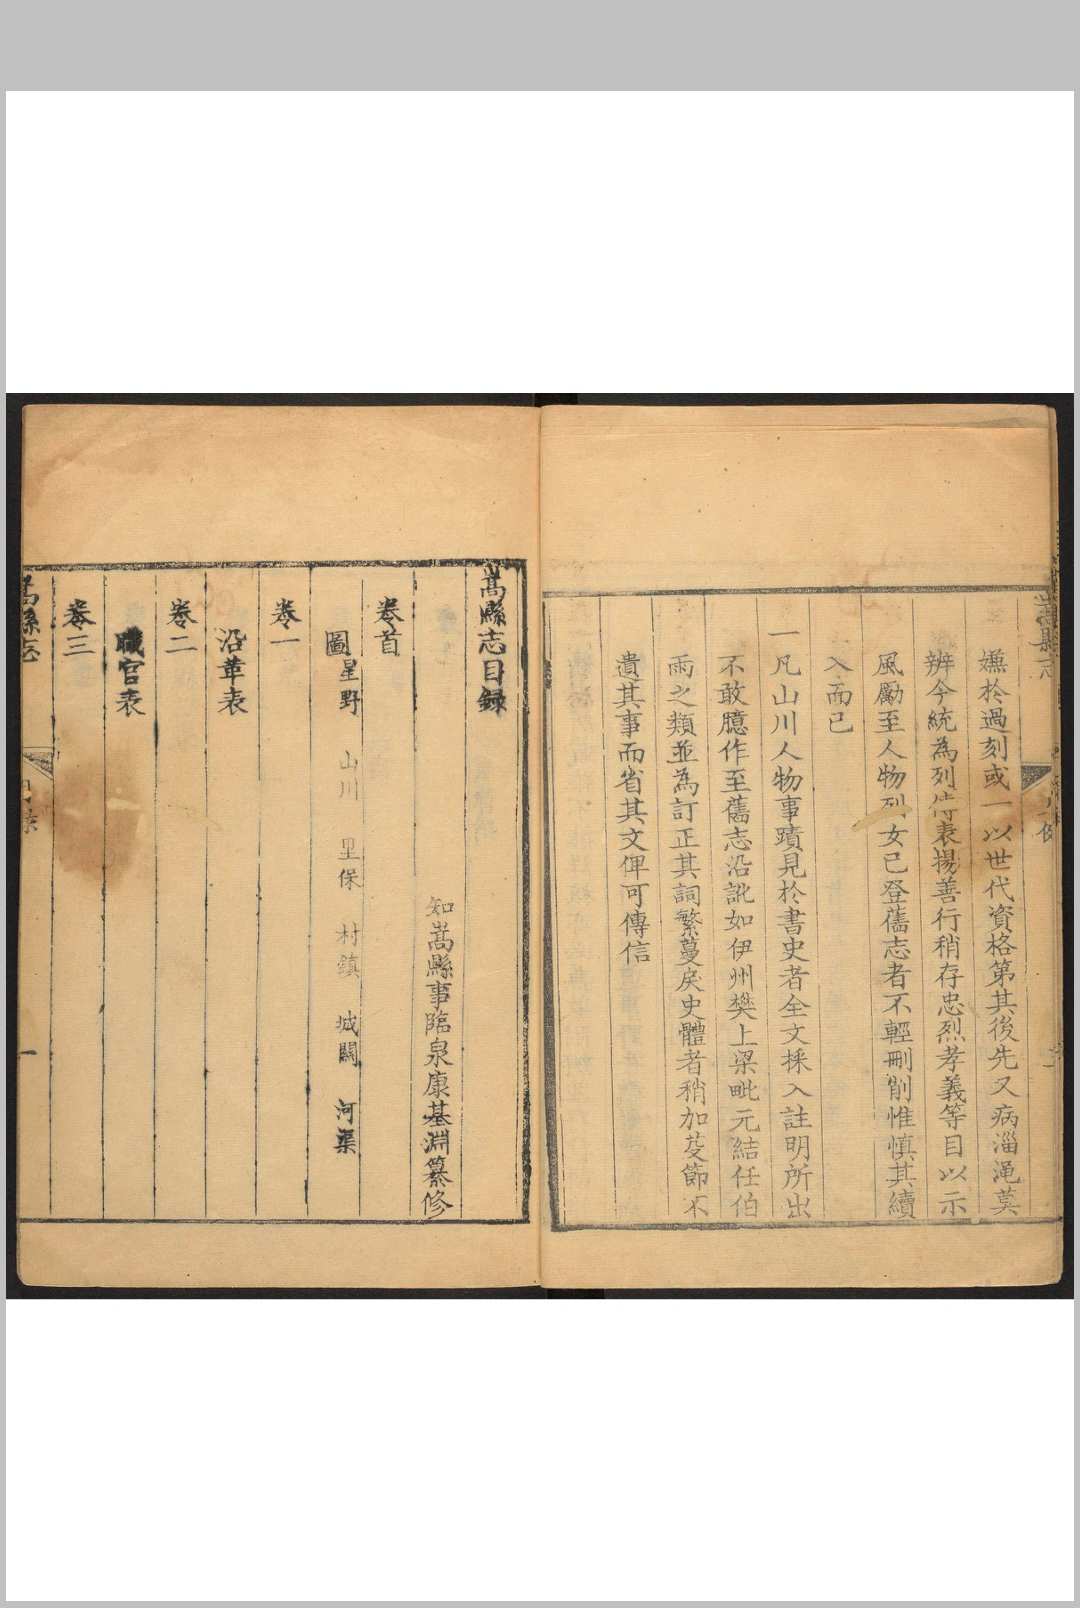 嫌於過刻或一以世代資格第其後先又病淄澠莫
辨今統為列傳表揚善行稍存忠烈孝義等目以示
風勵至人物列女已登舊志者不輕刪削惟慎其續
入而已
一凡山川人物事蹟見於書史者全文採入註明所出
不敢臆作至舊志沿訛如伊州樊上梁毗元結任伯
雨之類並為訂正其詞繁蔓戾史體者稍加芟節不
遺其事而省其文俾可傳信
嵩縣志目録
知嵩縣事臨泉康基淵纂修
卷首
圖星野 山川 里保 村鎮 城關 河渠
卷一
沿革表
卷二
職官表
卷三
嵩縣志
一